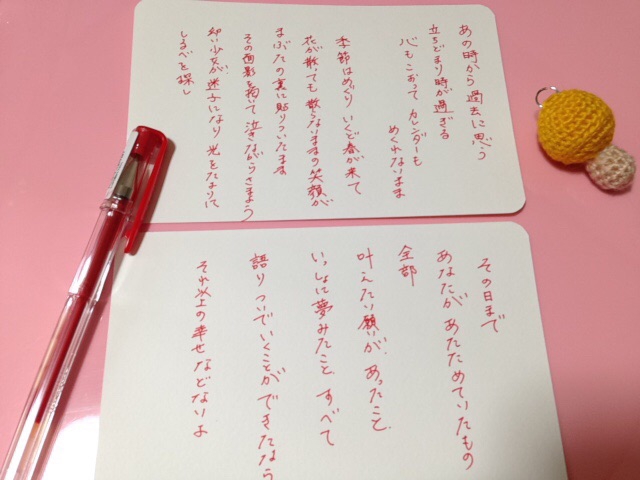 あの時から 過去に思う
立ちどまり 時が過ぎる
心もこおって カレンダーも
めくれないまま
季節はめぐり いくど春が来て
花が散ても 散らないままの笑顔が
まぶたの裏に貼りついたまま
その面影を抱いて 泣きながらさまよう
幼い少女が 迷子になり 光をたよりに
しるべを探し
その日まで
あなたが あたためていたもの
全部
叶えたい願いが、あったこと、
いっしょに夢みたこと、すべて
語りついでいくことができたなら
それ以上の幸せなどないよ